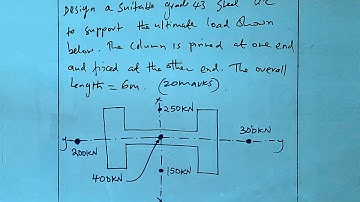 Design a suitable grade 43 Steel UC
to support the ultimate load shown
below. The column is pinned at one end
and fixed at the other end. The overall
length = 6m. (20marks)
x
250KN
y
y
200KN
300KN
400KN
150KN
x